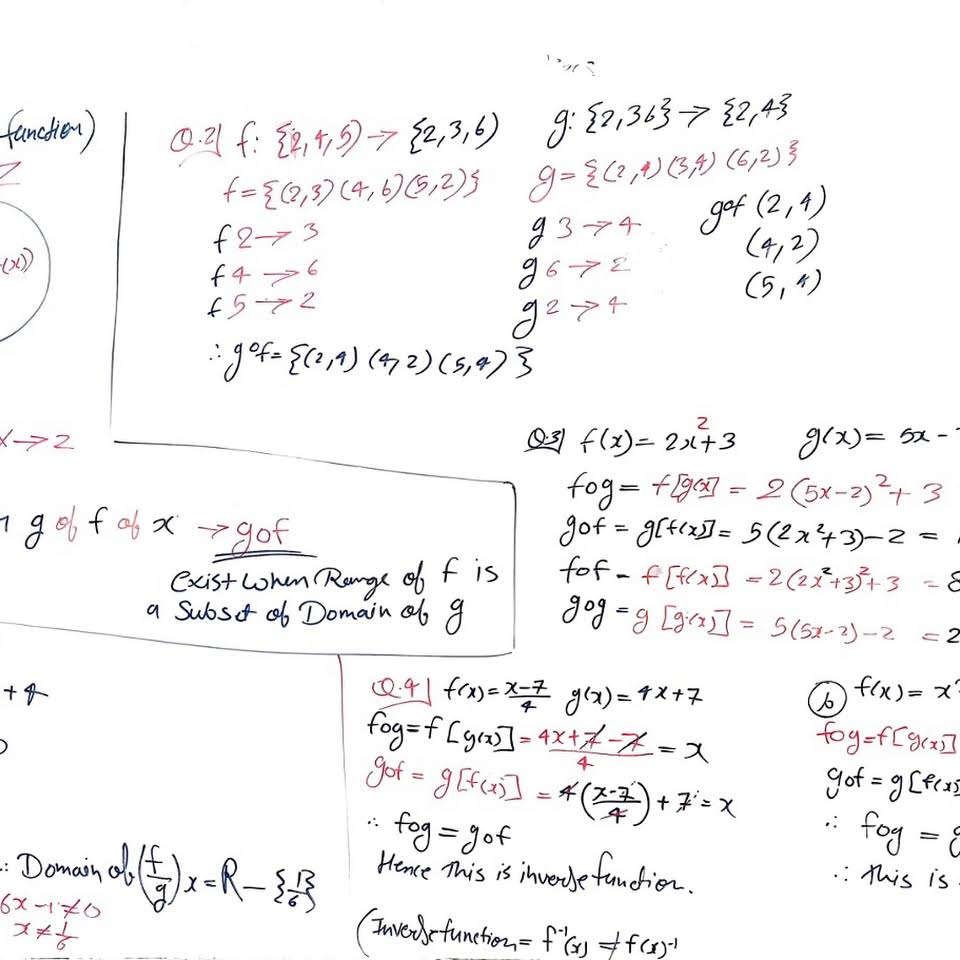 function)
Z
(x))
x→2
Q.2] f: {2,4,5) → {2,3,6)
f={(2,3)(4,6)(5,2)}
f 2→3
f 4→6
f 5→2
∴ gof={(2,4)(4,2)(5,4)}
g: {2,36} → {2,4}
g={(2,4)(3,4)(6,2)}
g 3→4
g 6→2
g 2→4
gof (2,4)
(4,2)
(5,4)
g of f of x → gof
exist when Range of f is
a Subset of Domain of g
Q.3] f(x)= 2x²+3 g(x)= 5x-
fog = f[g(x)] = 2(5x-2)²+3
gof = g[f(x)] = 5(2x²+3)-2 =
fof = f[f(x)] = 2(2x²+3)²+3 = 8
gog = g[g(x)] = 5(5x-2)-2 = 2
+4
∴ Domain of (f/g)x = R - {1/6}
6x-1≠0
x≠1/6
Q.4] f(x)= x-7/4 g(x)=4x+7
fog=f[g(x)]= 4x+7-7/4 = x
gof = g[f(x)] = 4(x-7/4)+7 = x
∴ fog = gof
Hence this is inverse function.
(Inverse function = f⁻¹(x) ≠ f(x)⁻¹
(b) f(x)= x
fog=f[g(x)]
gof = g[f(x)
∴ fog = g
∴ this is